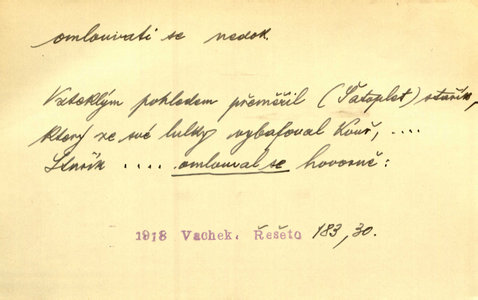 omlouvati se nedok.
Vzteklým pohledem přeměřil (Šatoplet) stařík,
který ze své lulky vybafoval kouř, ....
Stařík .... omlouval se hovorně:
1918 Vachek. Řešeto 183, 30.